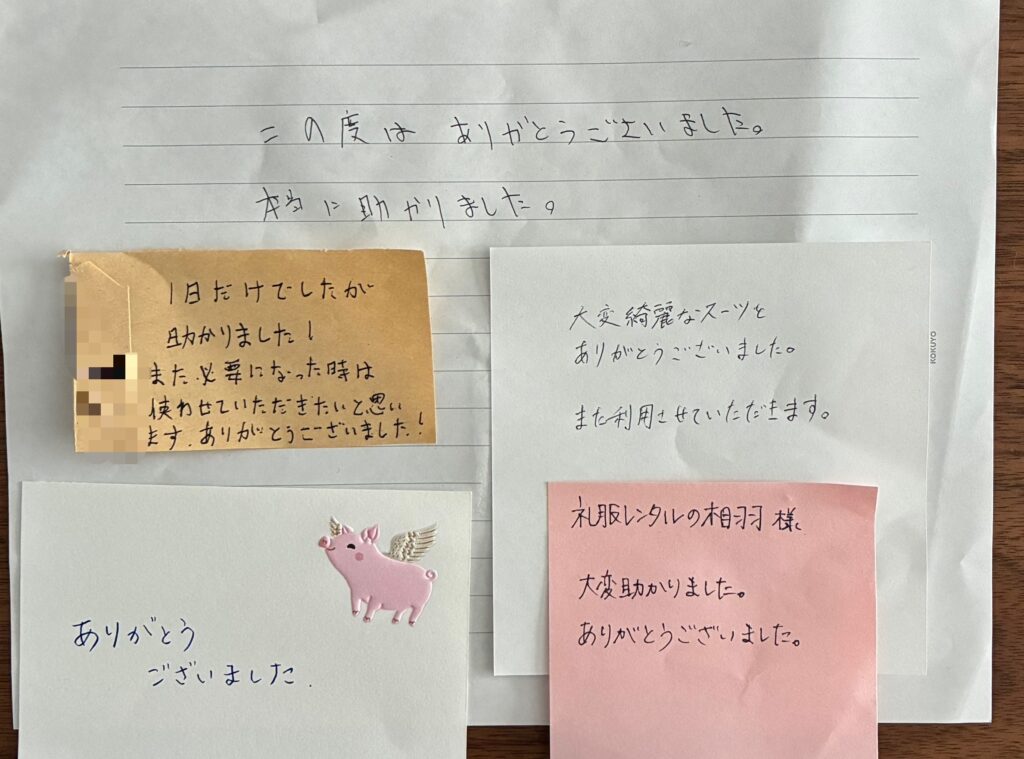 この度は ありがとうございました。
本当に助かりました。
1日だけでしたが
助かりました!
また必要になった時は
使わせていただきたいと思い
ます。ありがとうございました!
大変綺麗なスーツを
ありがとうございました。
また利用させていただきます。
KOKUYO
ありがとう
ございました.
礼服レンタルの相羽 様
大変助かりました。
ありがとうございました。